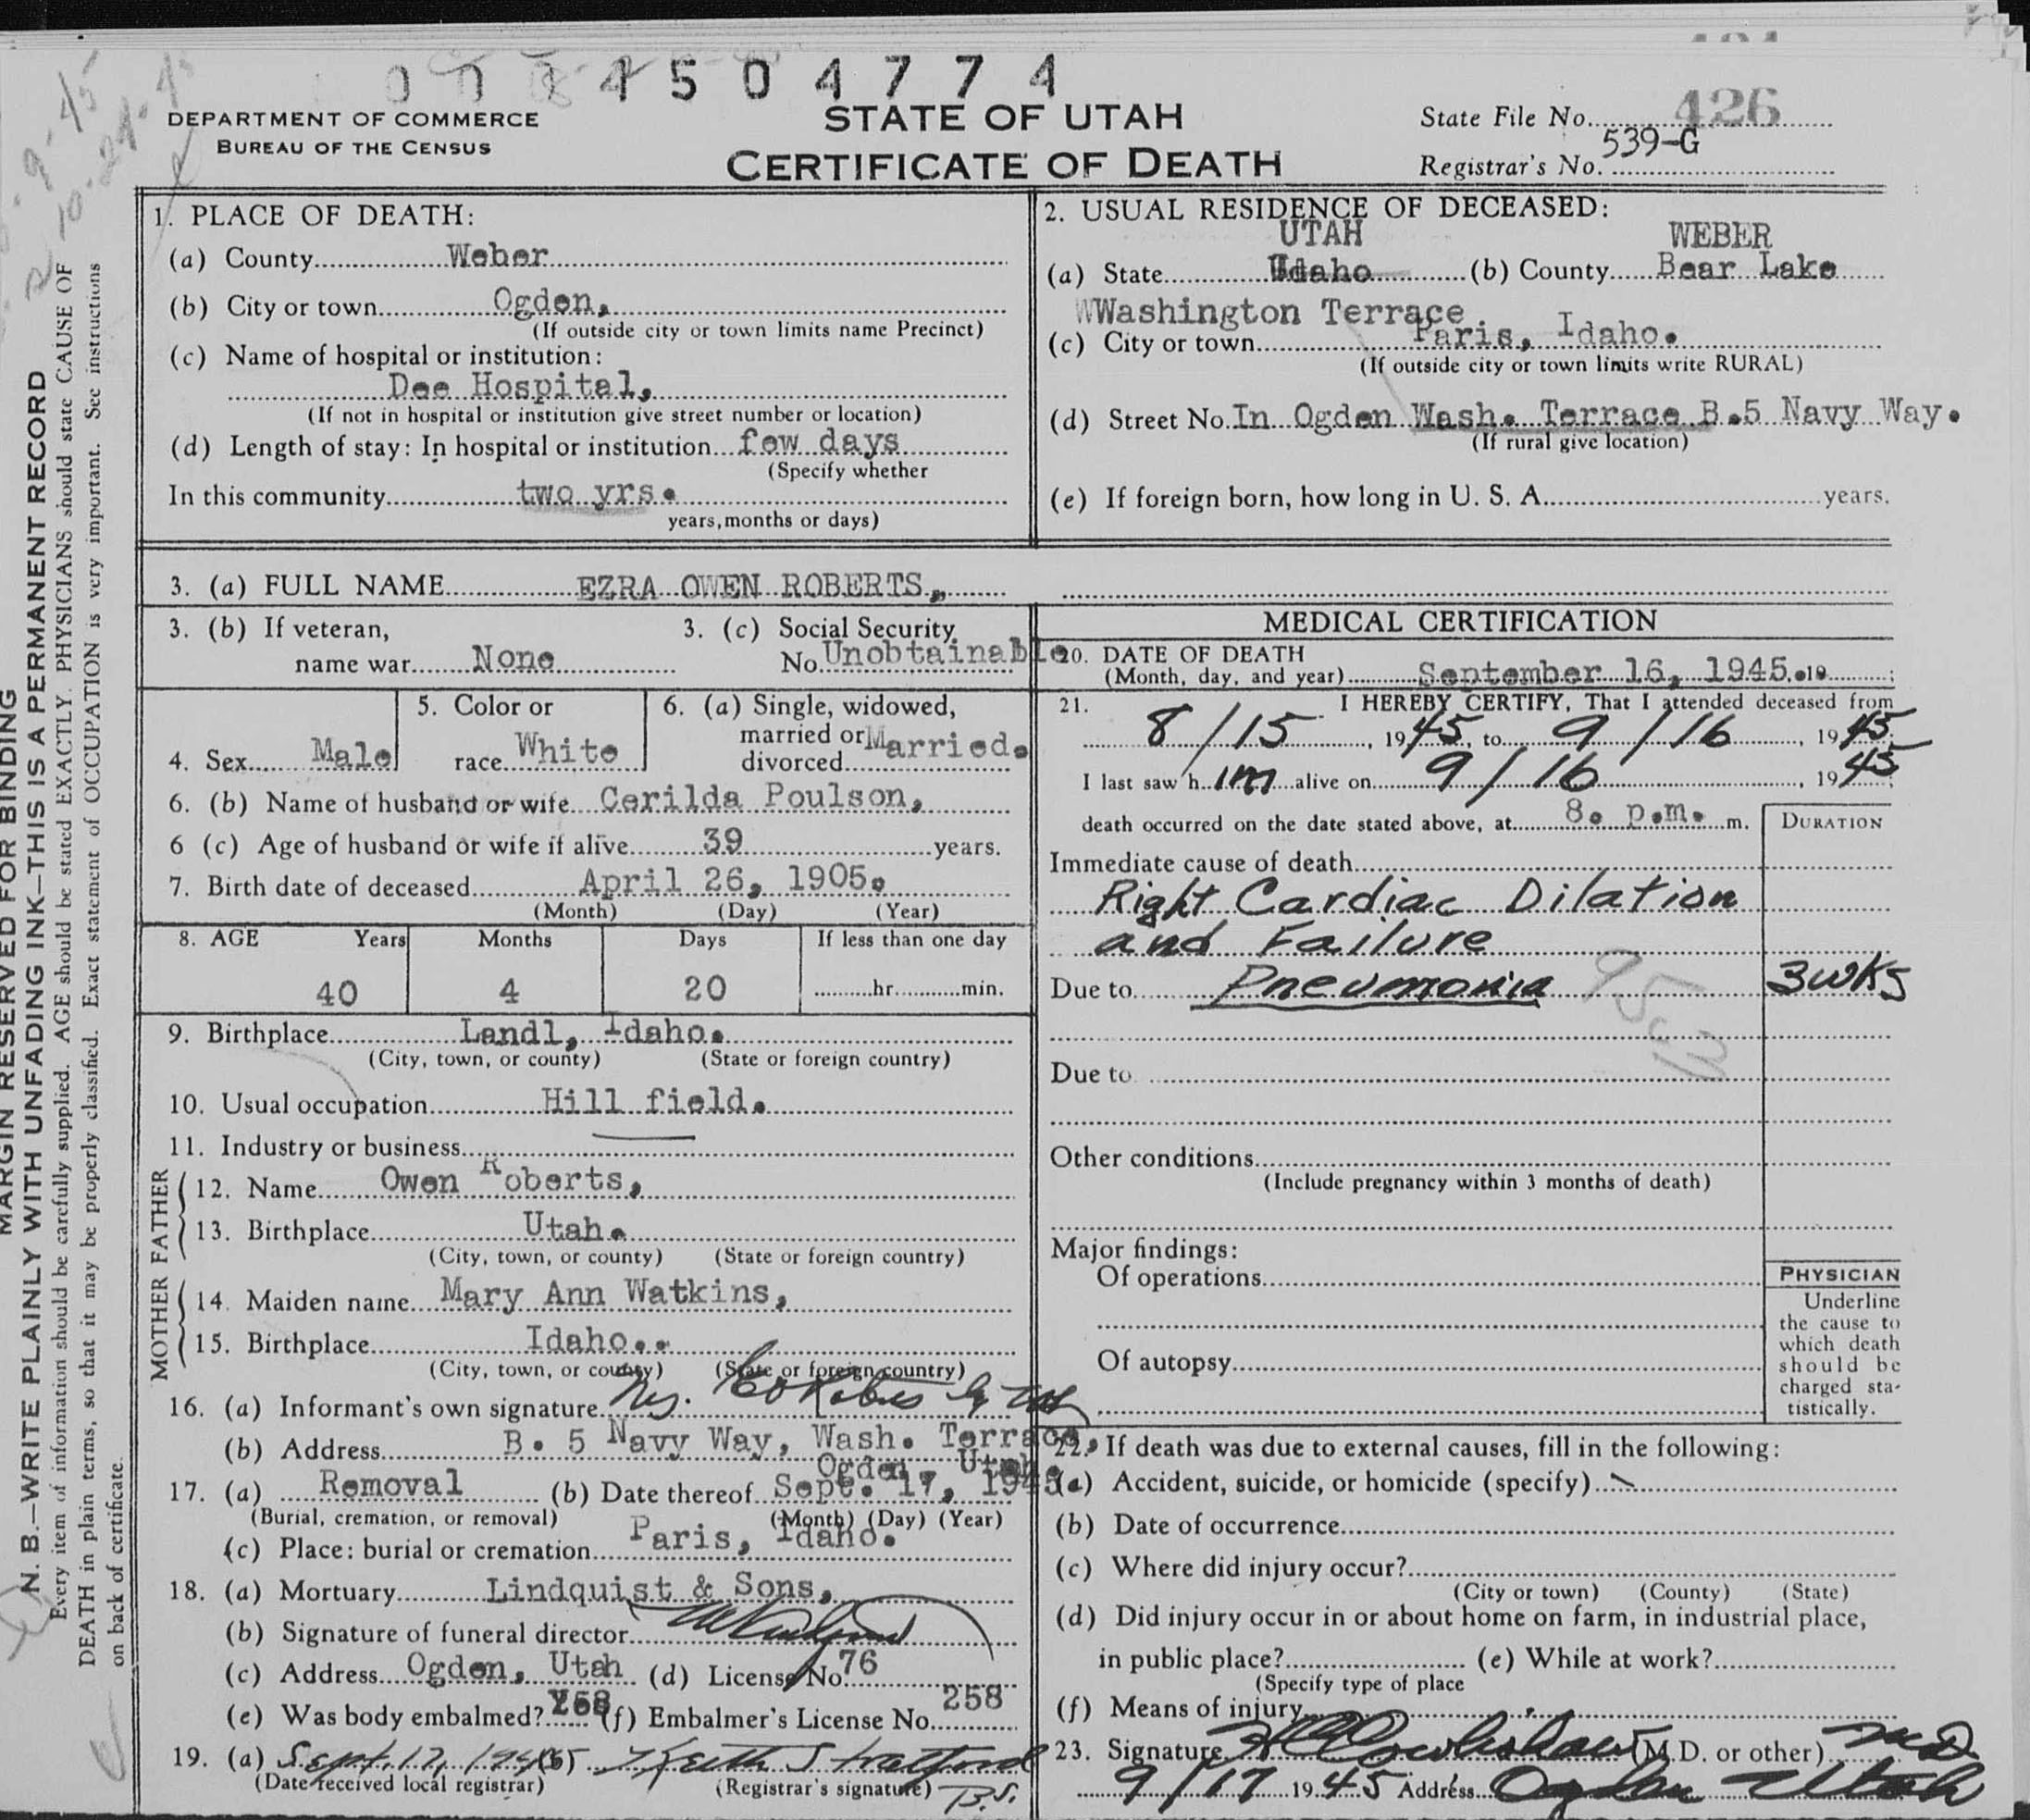 0 0 1 4 5 0 4 7 7 4
DEPARTMENT OF COMMERCE
BUREAU OF THE CENSUS
STATE OF UTAH
CERTIFICATE OF DEATH
State File No. 426
Registrar's No. 539-G
MARGIN RESERVED FOR BINDING
N. B.—WRITE PLAINLY WITH UNFADING INK—THIS IS A PERMANENT RECORD
Every item of information should be carefully supplied. AGE should be stated EXACTLY. PHYSICIANS should state CAUSE OF
DEATH in plain terms, so that it may be properly classified. Exact statement of OCCUPATION is very important. See instructions
on back of certificate.
1. PLACE OF DEATH:
(a) County Weber
(b) City or town Ogden,
(If outside city or town limits name Precinct)
(c) Name of hospital or institution:
Dee Hospital,
(If not in hospital or institution give street number or location)
(d) Length of stay: In hospital or institution few days
(Specify whether
In this community two yrs.
years, months or days)
2. USUAL RESIDENCE OF DECEASED:
UTAH WEBER
(a) State Idaho (b) County Bear Lake
Washington Terrace
(c) City or town Paris, Idaho.
(If outside city or town limits write RURAL)
(d) Street No. In Ogden Wash. Terrace B.5 Navy Way.
(If rural give location)
(e) If foreign born, how long in U. S. A. years.
3. (a) FULL NAME EZRA OWEN ROBERTS,
3. (b) If veteran,
name war None
3. (c) Social Security
No. Unobtainable
4. Sex Male
5. Color or
race White
6. (a) Single, widowed,
married or
divorced Married.
6. (b) Name of husband or wife Cerilda Poulson,
6 (c) Age of husband or wife if alive 39 years.
7. Birth date of deceased April 26, 1905.
(Month) (Day) (Year)
8. AGE Years Months Days If less than one day
40 4 20 hr. min.
9. Birthplace Landl, Idaho.
(City, town, or county) (State or foreign country)
10. Usual occupation Hill field.
11. Industry or business
FATHER
12. Name Owen Roberts,
13. Birthplace Utah.
(City, town, or county) (State or foreign country)
MOTHER
14. Maiden name Mary Ann Watkins,
15. Birthplace Idaho..
(City, town, or county) (State or foreign country)
16. (a) Informant's own signature
(b) Address B. 5 Navy Way, Wash. Terrace,
Ogden, Utah.
17. (a) Removal (b) Date thereof Sept. 17, 1945
(Burial, cremation, or removal) (Month) (Day) (Year)
(c) Place: burial or cremation Paris, Idaho.
18. (a) Mortuary Lindquist & Sons,
(b) Signature of funeral director
(c) Address Ogden, Utah (d) License No. 76
(e) Was body embalmed? (f) Embalmer's License No. 258
19. (a) Sept. 17, 1945 (b) Keith Stratford
(Date received local registrar) (Registrar's signature) B.S.
MEDICAL CERTIFICATION
20. DATE OF DEATH
(Month, day, and year) September 16, 1945. 19 ;
21. I HEREBY CERTIFY, That I attended deceased from
8/15, 1945, to 9/16, 1945.
I last saw him alive on 9/16, 1945;
death occurred on the date stated above, at 8. p.m. m.
DURATION
Immediate cause of death
Right Cardiac Dilation
and Failure
Due to Pneumonia 3 wks
Due to
Other conditions
(Include pregnancy within 3 months of death)
Major findings:
Of operations
Of autopsy
PHYSICIAN
Underline
the cause to
which death
should be
charged sta-
tistically.
22. If death was due to external causes, fill in the following:
(a) Accident, suicide, or homicide (specify)
(b) Date of occurrence
(c) Where did injury occur?
(City or town) (County) (State)
(d) Did injury occur in or about home on farm, in industrial place,
in public place? (e) While at work?
(Specify type of place
(f) Means of injury
23. Signature (M.D. or other) M.D.
9/17 1945 Address Ogden Utah